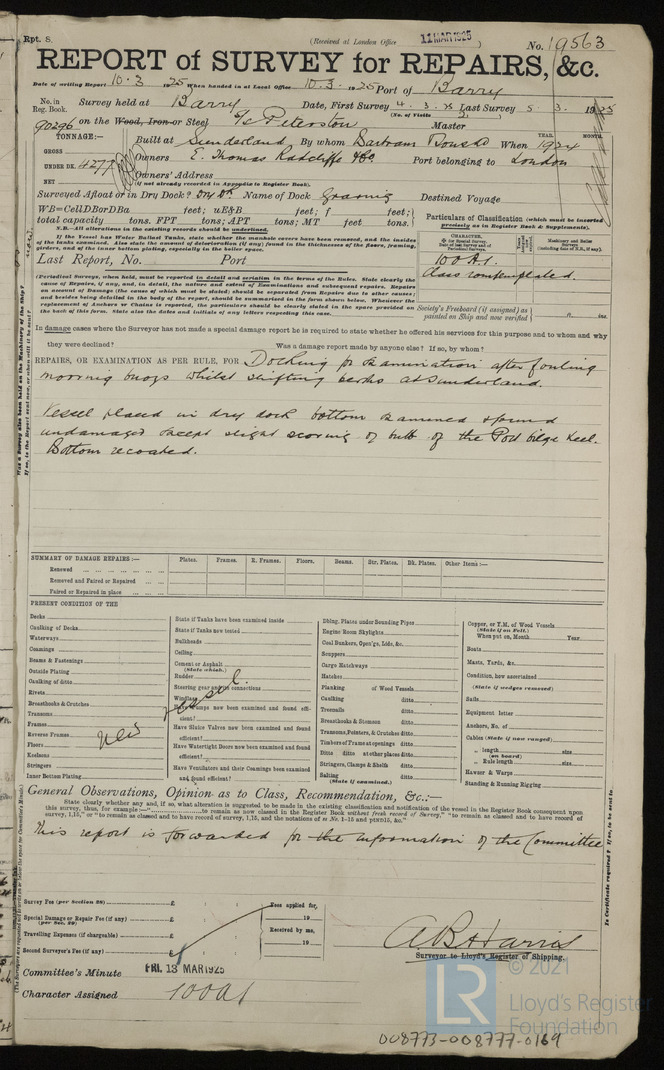 Rpt. 8.
(Received at London Office 11 MAR 1925)
No. 19563
REPORT of SURVEY for REPAIRS, &c.
Date of writing Report 10.3 1925 When handed in at Local Office 10.3.1925 Port of Barry
No. in Reg. Book. Survey held at Barry Date, First Survey 4.3.25 Last Survey 5.3.1925
(No. of Visits 2)
90296 on the Wood, Iron or Steel S/S Peterston Master
TONNAGE:—
Built at Sunderland By whom Bartram &Sons Ld When 1924
YEAR. MONTH.
GROSS
UNDER DK. 4277
NET
Owners E. Thomas Radcliffe &Co Port belonging to London
Owners' Address
(if not already recorded in Appendix to Register Book).
Surveyed Afloat or in Dry Dock? Dry Dk Name of Dock Graving Destined Voyage
WB=CellDBorDBa feet; uE&B feet; f feet;
total capacity tons. FPT tons; APT tons; MT feet tons.
N.B.—All alterations in the existing records should be underlined.
If the Vessel has Water Ballast Tanks, state whether the manhole covers have been removed, and the insides of the tanks examined. Also state the amount of deterioration (if any) found in the thicknesses of the floors, framing, and of the inner bottom plating, especially in the boiler space.
Particulars of Classification (which must be inserted precisely as in Register Book & Supplements).
CHARACTER.
Machinery and Boiler Surveys
100 A.1.
Class contemplated.
Last Report, No. Port
(Periodical Surveys, when held, must be reported in detail and seriatim in the terms of the Rules. State clearly the cause of Repairs, if any, and, in detail, the nature and extent of Examinations and subsequent repairs. Repairs on account of Damage (the cause of which must be stated) should be separated from Repairs due to other causes; and besides being detailed in the body of the report, should be summarised in the form shown below. Whenever the replacement of Anchors or Chains is reported, the particulars should be clearly stated in the space provided on the back of this form. State also the dates and initials of any letters respecting this case.
Society's Freeboard (if assigned) as painted on Ship and now verified ft. ins.
In damage cases where the Surveyor has not made a special damage report he is required to state whether he offered his services for this purpose and to whom and why
they were declined? Was a damage report made by anyone else? If so, by whom?
REPAIRS, OR EXAMINATION AS PER RULE, FOR Docking for examination after fouling
mooring buoys whilst shifting berths at Sunderland.
Vessel placed in dry dock bottom examined & found
undamaged except slight scoring of bulb of the Port bilge keel.
Bottom recoated.
SUMMARY OF DAMAGE REPAIRS:— Plates. Frames. R. Frames. Floors. Beams. Str. Plates. Dk. Plates. Other Items:—
Renewed
Removed and Faired or Repaired
Faired or Repaired in place
PRESENT CONDITION OF THE
Decks
Caulking of Decks
Waterways
Coamings
Beams & Fastenings
Outside Plating
Caulking of ditto
Rivets
Breasthooks & Crutches
Transoms
Frames
Reverse Frames
Floors
Keelsons
Stringers
Inner Bottom Plating
State if Tanks have been examined inside
State if Tanks now tested
Bulkheads
Ceiling
Cement or Asphalt (State which.)
Rudder
Steering gear and connections
Windlass
Have Pumps now been examined and found efficient?
Have Sluice Valves now been examined and found efficient?
Have Watertight Doors now been examined and found efficient?
Have Ventilators and their Coamings been examined and found efficient?
New vessel.
Dblng. Plates under Sounding Pipes
Engine Room Skylights
Coal Bunkers, Open'gs, Lids, &c.
Scuppers
Cargo Hatchways
Hatches
Planking of Wood Vessels
Caulking ditto
Treenails ditto
Breasthooks & Stemson ditto
Transoms, Pointers, & Crutches ditto
Timbers of Frame at openings ditto
Ditto ditto at other places ditto
Stringers, Clamps & Shelfs ditto
Salting ditto
(State if examined.)
Copper, or Y.M. of Wood Vessels
(State if on Felt.)
When put on, Month Year
Boats
Masts, Yards, &c.
Condition, how ascertained
(State if wedges removed)
Sails
Equipment letter
Anchors, No. of
Cables (State if now ranged)
„ length (on board) size
„ Rule length size
Hawser & Warps
Standing & Running Rigging
General Observations, Opinion as to Class, Recommendation, &c.:—
State clearly whether any and, if so, what alteration is suggested to be made in the existing classification and notification of the vessel in the Register Book consequent upon
This report is forwarded for the information of the Committee
Survey Fee (per Section 28) £
Special Damage or Repair Fee (if any) £
(per Sec. 29)
Travelling Expenses (if chargeable) £
Second Surveyor's Fee (if any) £
Fees applied for, 19
Received by me, 19
A.B. Harris
Surveyor to Lloyd's Register of Shipping.
Committee's Minute FRI. 13 MAR 1925
Character Assigned 100A1
© 2021
LR
Lloyd's Register
Foundation
008773-008777-0169